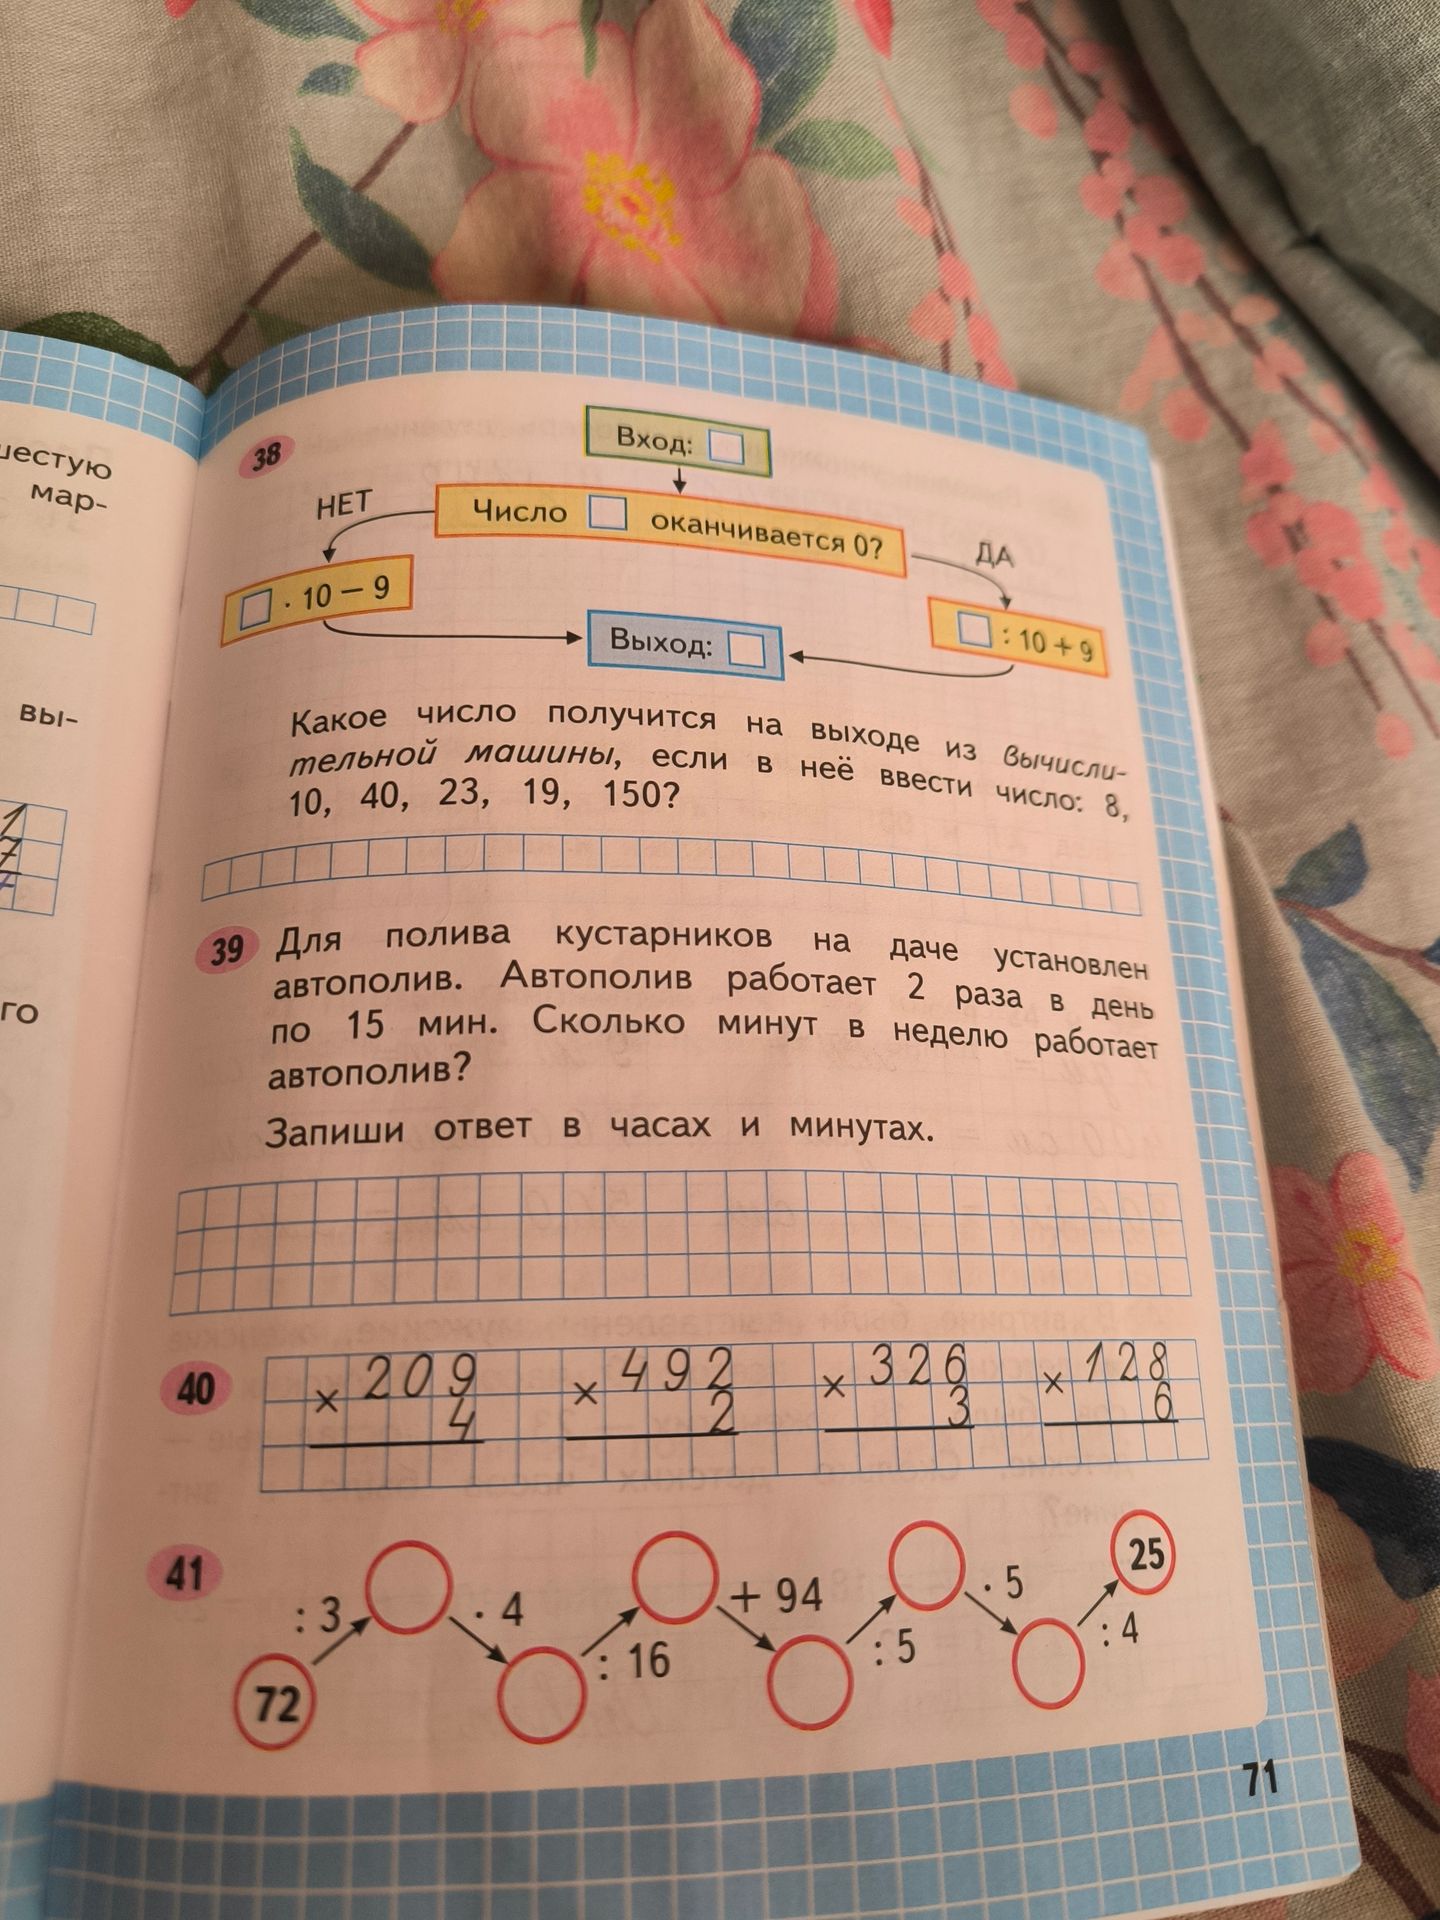 шестую
мар-
вы-
го
1
7
38
Вход:
НЕТ
Число оканчивается 0?
ДА
· 10 − 9
Выход:
: 10 + 9
Какое число получится на выходе из вычисли-
тельной машины, если в неё ввести число: 8,
10, 40, 23, 19, 150?
39 Для полива кустарников на даче установлен
автополив. Автополив работает 2 раза в день
по 15 мин. Сколько минут в неделю работает
автополив?
Запиши ответ в часах и минутах.
40 × 209 × 492 × 326 × 128
4 2 3 6
41
: 3 · 4 : 16 + 94 : 5 · 5 : 4
72 25
71